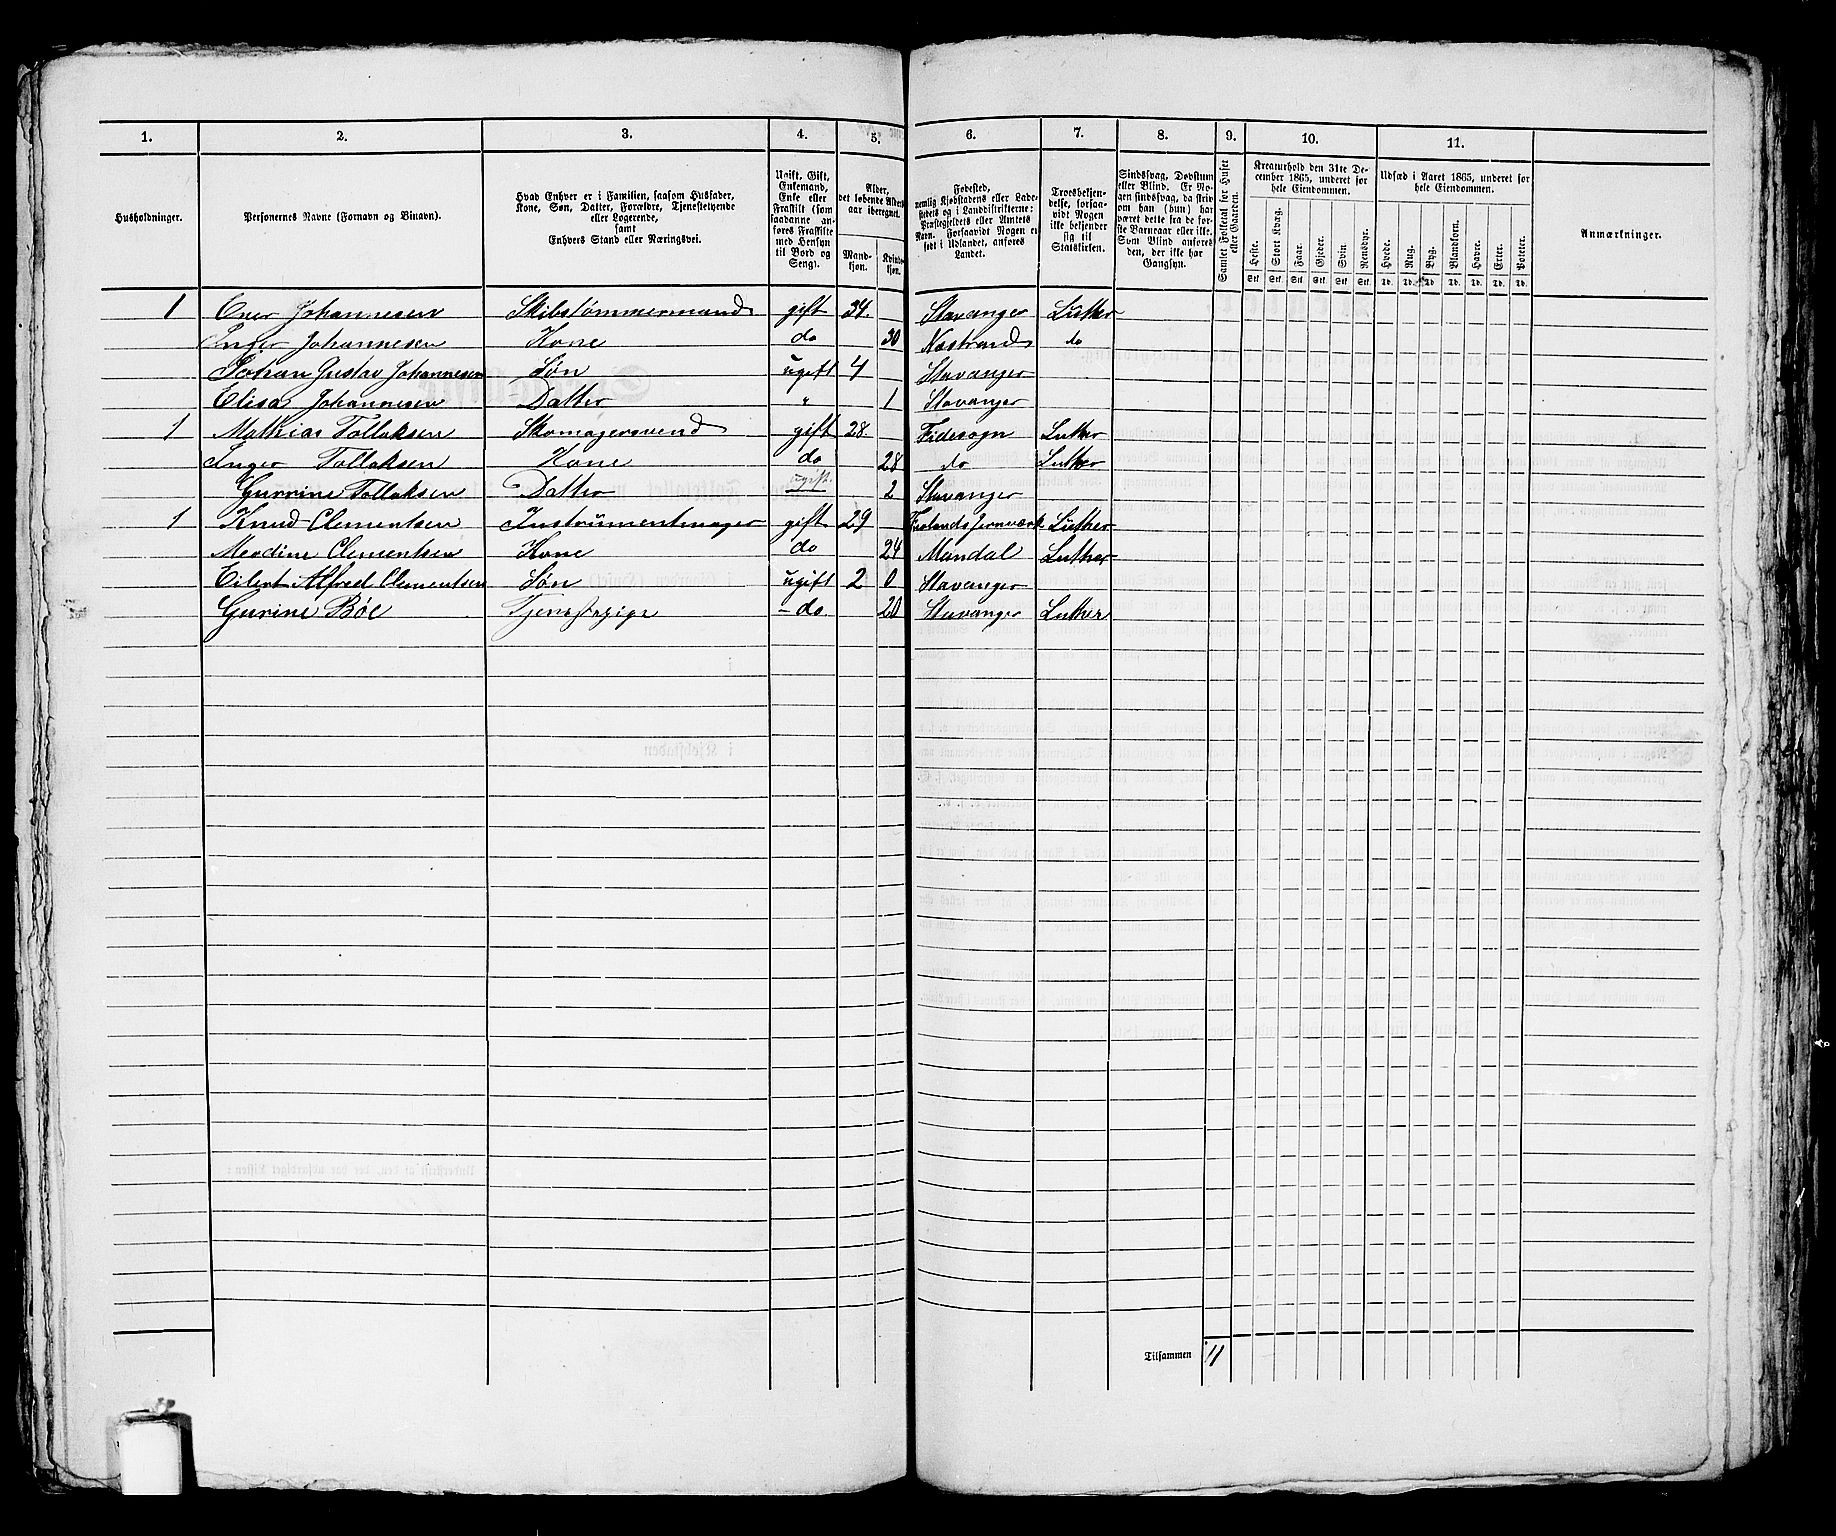 1. 2. 3. 4. 5. 6. 7. 8. 9. 10. 11.
Husholdninger.
Personernes Navne (Fornavn og Binavn).
Hvad Enhver er i Familien, saasom Husfader,
Kone, Søn, Datter, Forældre, Tjenestetyende
eller Logerende,
samt
Enhvers Stand eller Næringsvei.
Ugift, Gift,
Enkemand,
Enke eller
Fraskilt (som
saadanne an-
føres Fraskilte
med Hensyn
til Bord og
Seng).
Alder,
det løbende Alders-
aar iberegnet.
Mand-
kjøn.
Kvinde-
kjøn.
Fødested,
nemlig Kjøbstadens eller Lade-
stedets og i Landdistrikterne:
Præstegjeldets eller Amtets
Navn. Forsaavidt Nogen er
født i Udlandet, anføres
Landet.
Troesbekjen-
delse, forsaa-
vidt Nogen
ikke bekjender
sig til
Statskirken.
Sindssvag, Døvstum
eller Blind. Er No-
gen sindssvag, da skriv
om han (hun) har
været dette fra de før-
ste Barneaar eller ikke.
Som Blind anføres
den, der ikke har
Gangsyn.
Samlet Folketal for Huset
eller Gaarden.
Kreaturhold den 31te De-
cember 1865, underet for
hele Eiendommen.
Heste. Stort Kvæg. Faar. Gjeder. Svin Rensdyr.
Stk. Stk. Stk. Stk. Stk. Stk.
Udsæd i Aaret 1865, underet for
hele Eiendommen.
Hvede. Rug. Byg. Blandkorn. Havre. Erter. Poteter.
Td. Td. Td. Td. Td. Td. Td.
Anmærkninger.
1 Johannesen Skibstømmermand gift 34. Stavanger Luther
Inger Johannesen Kone do 30 Næstrand do
Johan Gustav Johannesen Søn ugift 4 Stavanger
Elisa Johannesen Datter " 1 Stavanger
1 Mathias Tollaksen Skomagersvend gift 28. Fidesogn Luther
Inger Tollaksen Kone do 28 do Luther
Gurine Tollaksen Datter ugift. 2 Stavanger
1 Knud Clementsen Instrumentmager gift 29 Frolands Jernværk Luther
Clementsen Kone do 24 Mandal Luther
Eilert Alfred Clementsen Søn ugift 2 0 Stavanger
Gurine Bøe Tjenestepige - do 20 Stavanger Luther
Tilsammen 11